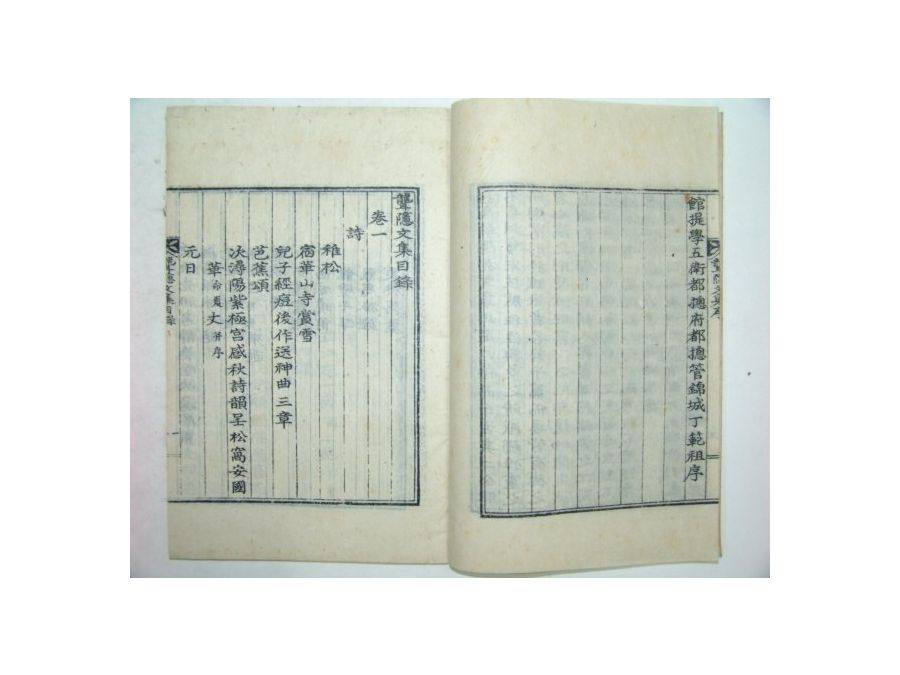 館提學五衛都摠府都摠管錦城丁範祖序
聾隱文集目錄
卷一
詩
稚松
宿華山寺賞雪
兒子經痘後作送神曲三章
芭蕉頌
次潯陽紫極宮感秋詩韻呈松窩安國
華命夏丈并序
元日
聾隱文集目錄